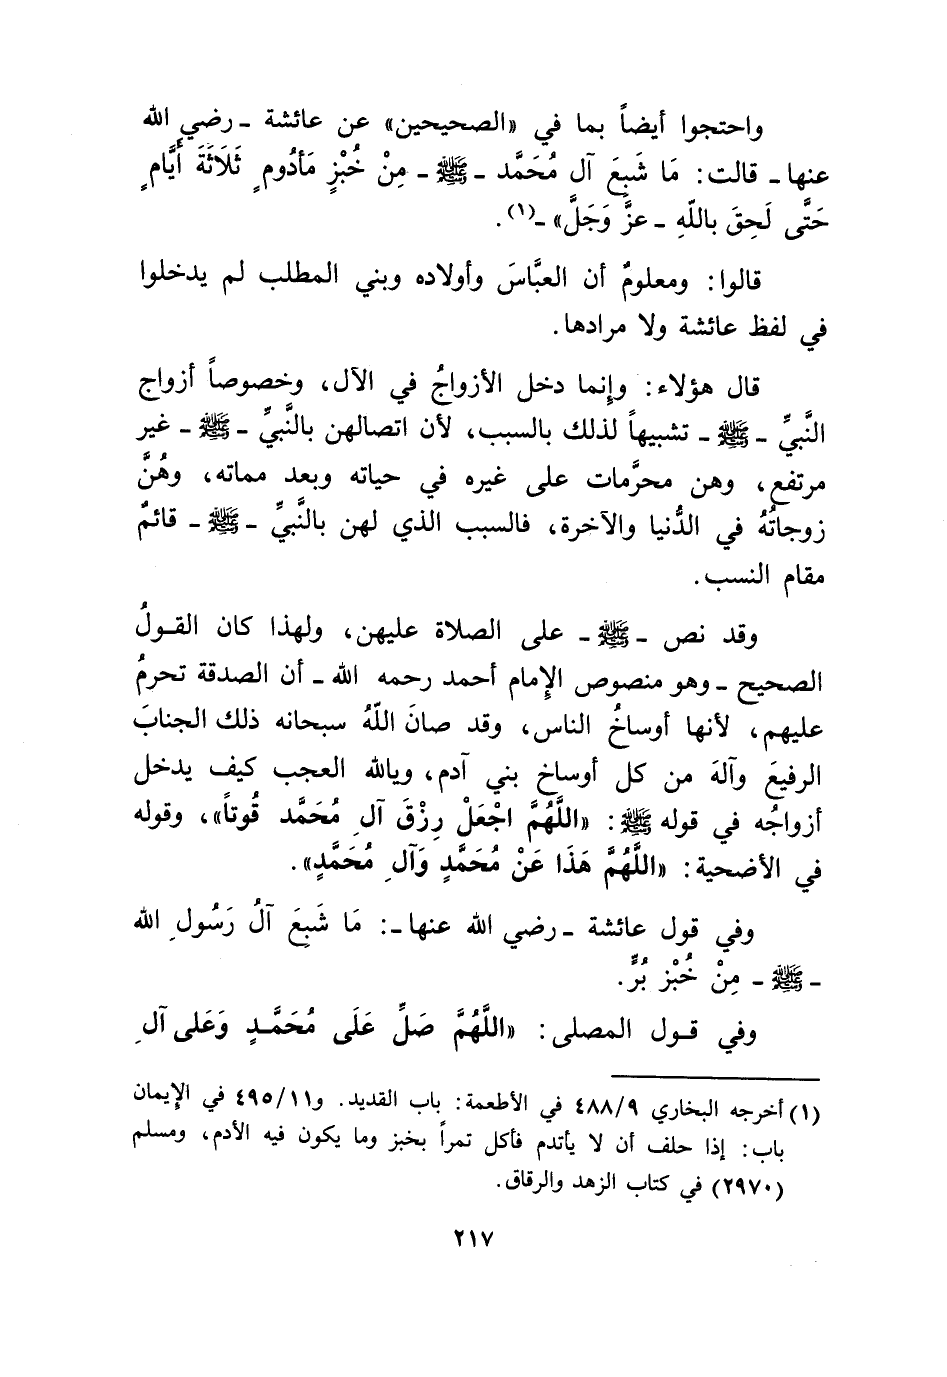 واحتجوا أيضاً بما في «الصحيحين» عن عائشة ـ رضي الله
عنها ـ قالت: مَا شَبِعَ آل مُحَمَّد ـ ﷺ ـ مِنْ خُبْزٍ مَأدُومٍ ثَلَاثَةَ أَيَّامٍ
حَتَّى لَحِقَ باللّهِ ـ عزَّ وَجَلَّ» ـ(١).
قالوا: ومعلومٌ أن العبَّاسَ وأولاده وبني المطلب لم يدخلوا
في لفظ عائشة ولا مرادها.
قال هؤلاء: وإنما دخل الأزواجُ في الآل، وخصوصاً أزواج
النَّبيِّ ـ ﷺ ـ تشبيهاً لذلك بالسبب، لأن اتصالهن بالنَّبيِّ ـ ﷺ ـ غير
مرتفع، وهن محرَّمات على غيره في حياته وبعد مماته، وهُنَّ
زوجاتُهُ في الدُّنيا والآخرة، فالسبب الذي لهن بالنَّبيِّ ـ ﷺ ـ قائمٌ
مقام النسب.
وقد نص ـ ﷺ ـ على الصلاة عليهن، ولهذا كان القـولُ
الصحيح ـ وهو منصوص الإمام أحمد رحمه الله ـ أن الصدقة تحرمُ
عليهم، لأنها أوساخُ الناس، وقد صانَ اللّهُ سبحانه ذلك الجنابَ
الرفيعَ وآلهَ من كل أوساخ بني آدم، ويالله العجب كيف يدخل
أزواجُه في قوله ﷺ: «اللَّهُمَّ اجْعَلْ رِزْقَ آلِ مُحَمَّد قُوتاً»، وقوله
في الأضحية: «اللَّهُمَّ هَذَا عَنْ مُحَمَّدٍ وَآلِ مُحَمَّدٍ».
وفي قول عائشة ـ رضي الله عنها ـ: مَا شَبِعَ آلُ رَسُولِ الله
ـ ﷺ ـ مِنْ خُبْز بُرٍّ.
وفي قـول المصلى: «اللَّهُمَّ صَلِّ عَلَى مُحَمَّـدٍ وَعَلى آلِ
(١) أخرجه البخاري ٤٨٨/٩ في الأطعمة: باب القديد. و٤٩٥/١١ في الإيمان
باب: إذا حلف أن لا يأتدم فأكل تمراً بخبز وما يكون فيه الأدم، ومسلم
(٢٩٧٠) في كتاب الزهد والرقاق.
٢١٧